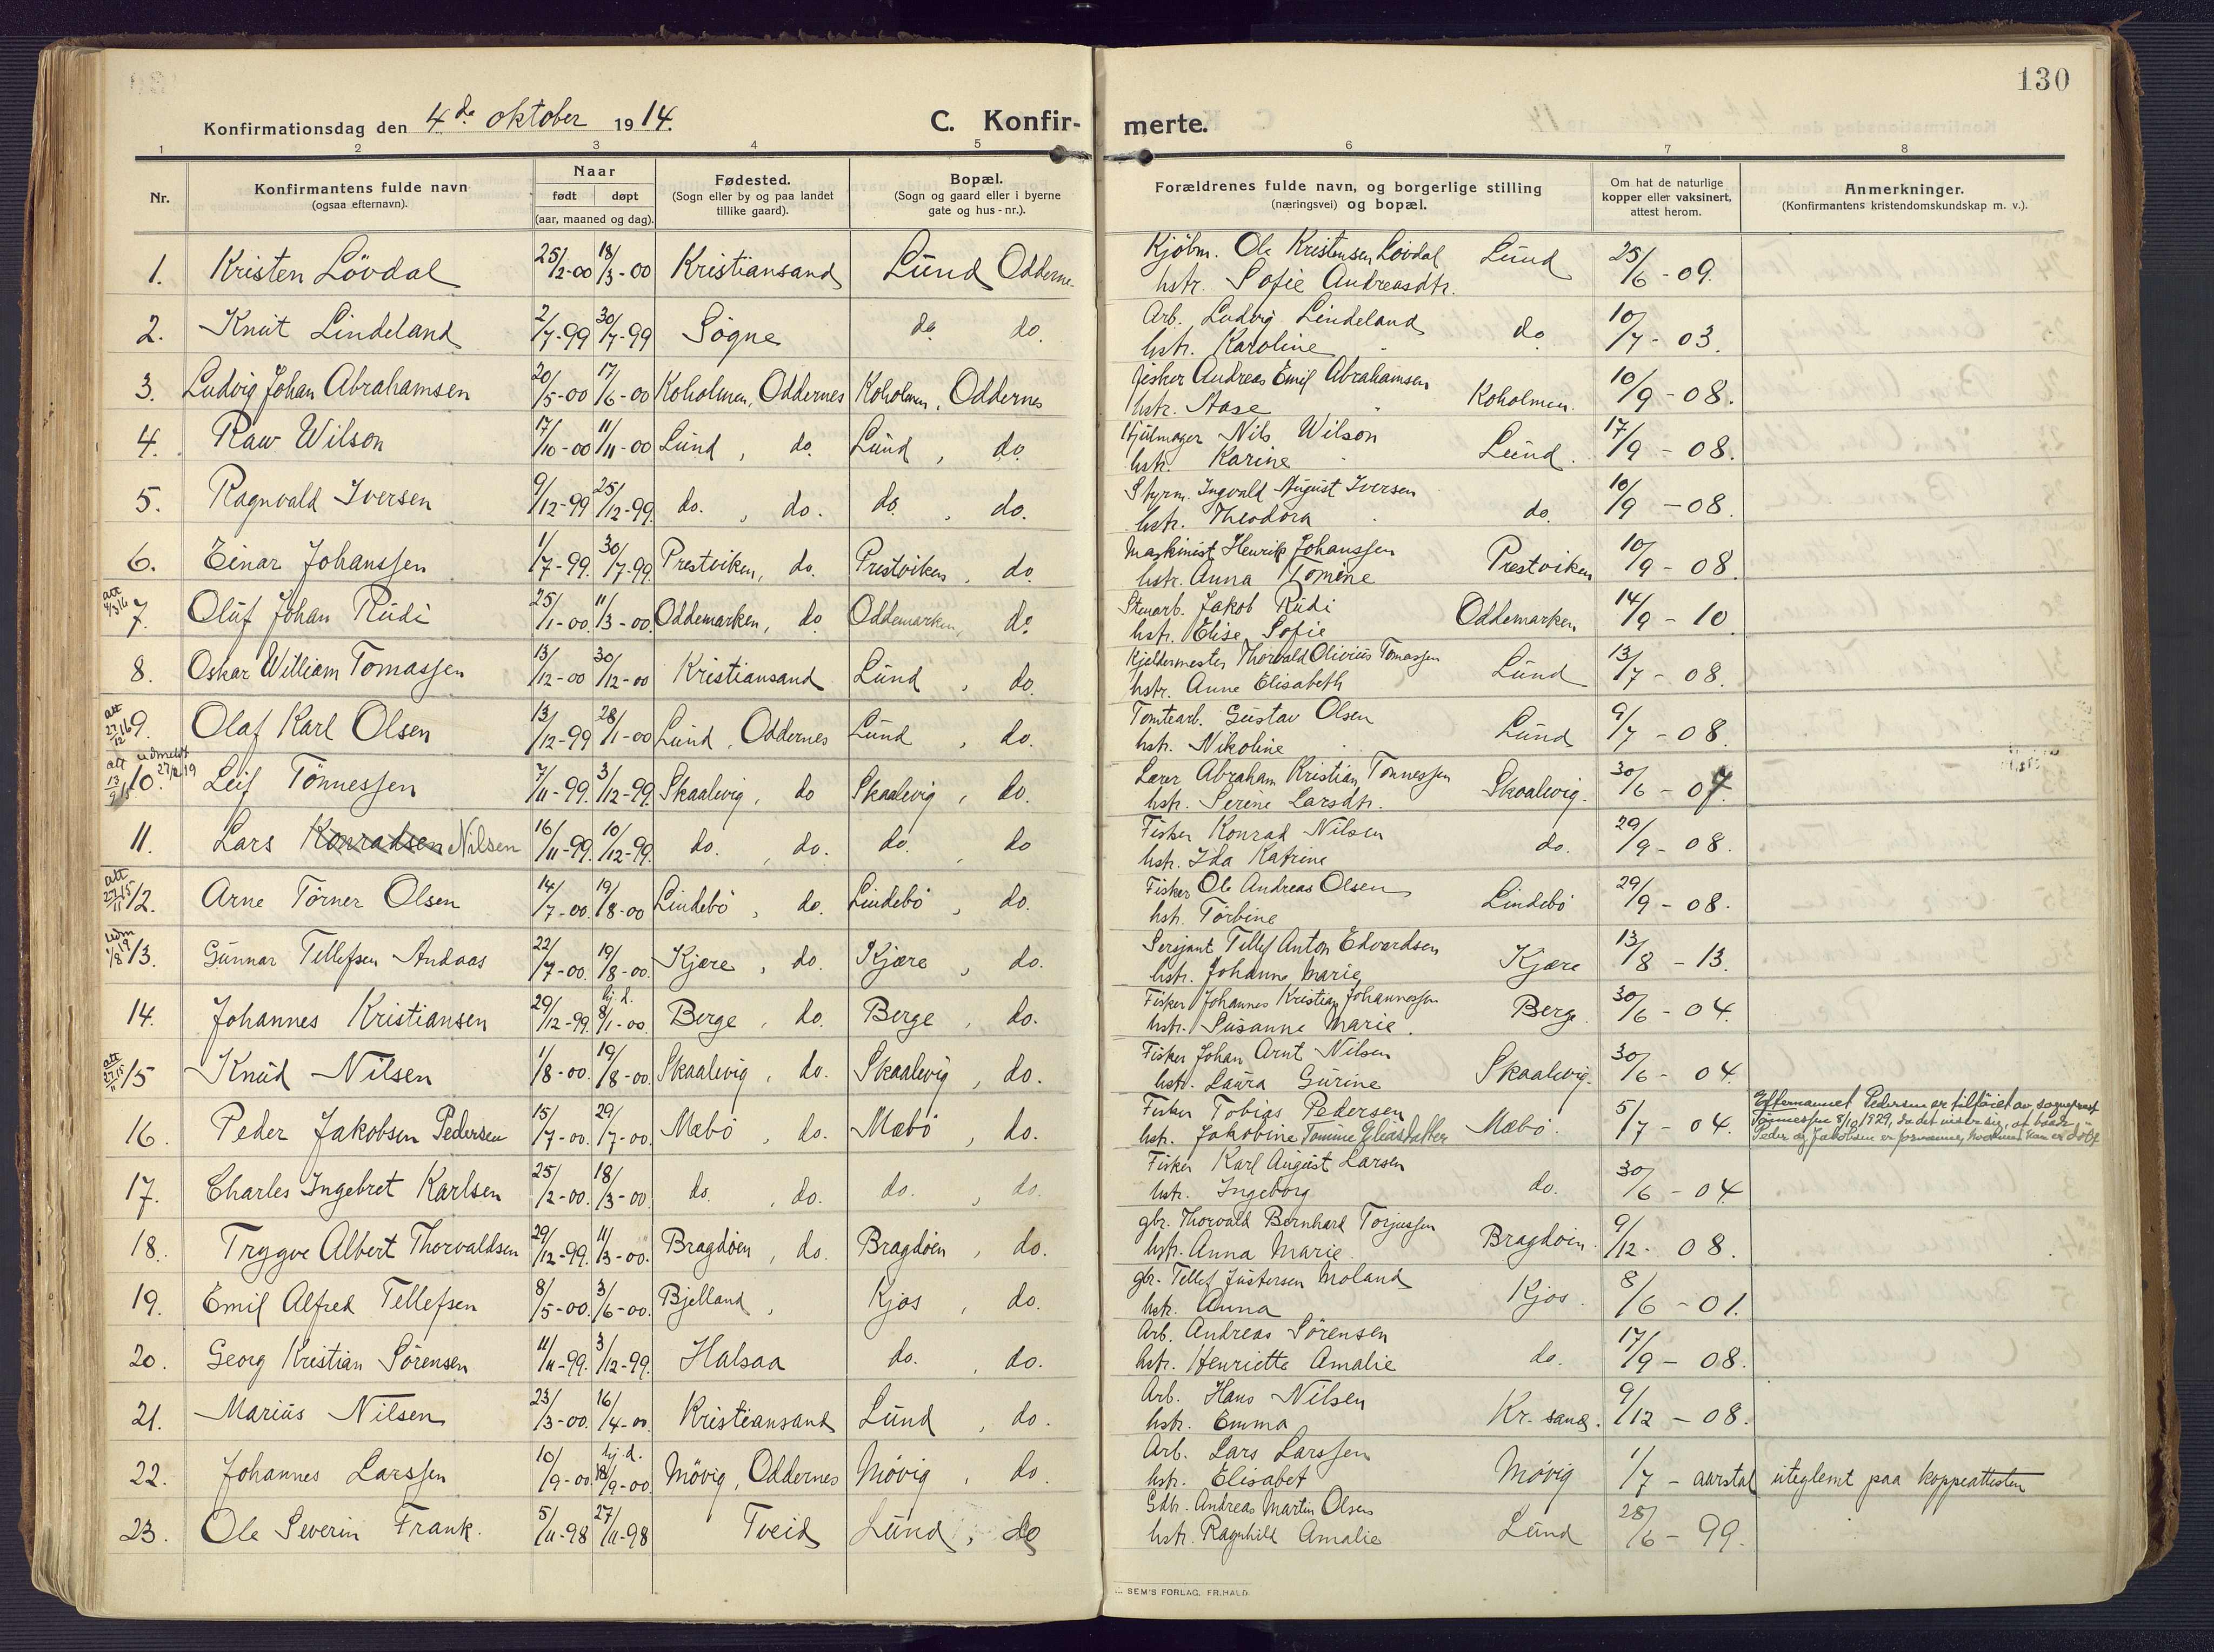 130
Konfirmationsdag den 4de oktober 1914. C. Konfir- merte.
1 2 3 4 5 6 7 8
Nr. Konfirmantens fulde navn (ogsaa efternavn). Naar født døpt (aar, maaned og dag). Fødested. (Sogn eller by og paa landet tillike gaard). Bopæl. (Sogn og gaard eller i byerne gate og hus-nr.). Forældrenes fulde navn, og borgerlige stilling (næringsvei) og bopæl. Om hat de naturlige kopper eller vaksinert, attest herom. Anmerkninger. (Konfirmantens kristendomskundskap m. v.).
1. Kristen Lövdal 25/2-00 18/3-00 Kristiansand Lund Odderne Kjöbm. Ole Kristensen Lövdal Lund 25/6-09.
hstr. Sofie Andreasdtr.
2. Knut Lindeland 2/7-99 30/7-99 Sögne do do. Arb. Ludvig Lindeland do. 10/7-03.
hstr. Karoline
3. Ludvig Johan Abrahamsen 20/5-00 17/6-00 Koholmen, Oddernes Koholmen, Oddernes fisker Andreas Emil Abrahamsen Koholmen. 10/9-08.
hstr. Aase
4. Raw Wilson 17/10-00 11/11-00 Lund, do. Lund, do. Hjulmager Nils Wilson Lund. 17/9-08.
hstr. Karine
5. Ragnvald Iversen 9/12-99 25/12-99. do., do. do., do. Styrm. Ingvald August Iversen do. 10/9-08.
hstr. Theodora
6. Einar Johanssen 1/7-99. 30/7-99. Prestviken, do. Prestviken, do. Maskinist Henrik Johanssen Prestviken 10/9-08.
hstr. Anna Tomine
att 4/3 16 7. Oluf Johan Rudi 25/1-00. 11/3-00. Oddemarken, do. Oddemarken, do. Stenarb. Jakob Rudi Oddemarken 14/9-10.
hstr. Elise Sofie
8. Oskar William Tomassen 13/12-00 30/12-00 Kristiansand Lund, do. Kjeldermester Thorvald Olivius Tomassen Lund 13/7-08.
hstr. Anne Elisabeth
att 27/12 16 9. Olaf Karl Olsen 13/12-99 28/1-00 Lund, Oddernes Lund, do. Tomtearb. Gustav Olsen Lund 9/7-08.
hstr. Nikoline
att 13/9 15 udmeldt 27/2 19 10. Leif Tönnessen 7/11-99. 3/12-99. Skaalevig, do Skaalevig, do. Lærer Abraham Kristian Tönnessen Skaalevig. 30/6-07.
hstr. Serene Larsdtr.
11. Lars Konradsen Nilsen 16/11-99. 10/12-99. do., do. do., do Fisker Konrad Nilsen do. 29/9-08.
hstr. Ida Katrine
att 27/11 15 12. Arne Törner Olsen 14/7-00. 19/8-00 Lindebö, do. Lindebö, do. Fisker Ole Andreas Olsen Lindebö 29/9-08.
hst. Torbine
udm 1/8 19 13. Gunnar Tellefsen Andaas 22/7-00. 19/8-00. Kjære, do. Kjære, do. Sersjant Tellef Anton Edvardsen Kjære 13/8-13.
hstr. Johanne Marie
14. Johannes Kristiansen 29/12-99. hj. d. 8/1-00. Berge, do. Berge, do. Fisker Johannes Kristian Johannessen Berge 30/6-04.
hstr. Susanne Marie.
att 27/11 15 15 Knud Nilsen 1/8-00. 19/8-00. Skaalevig, do. Skaalevig, do. Fisker Johan Arnt Nilsen Skaalevig. 30/6-04.
hstr. Laura Gurine
16. Peder Jakobsen Pedersen 15/7-00. 29/7-00. Mæbö, do. Mæbö, do. Fisker Tobias Pedersen Mæbö. 5/7-04. Efternavnet Pedersen er tilföiet av sogneprest
hstr. Jakobine Tomine Eliasdatter Tönnessen 8/10 1929, da det viste sig, at baade
Peder og Jakobsen er fornavne, hvormed han er döbt
17. Charles Ingebret Karlsen 25/2-00. 18/3-00. do., do. do., do. Fisker Karl August Larsen do. 30/6-04
hstr. Ingeborg
18. Trygve Albert Thorvaldsen 29/12-99. 11/3-00. Bragdöen, do. Bragdöen, do. gbr. Thorvald Bernhard Torjussen Bragdöen. 9/12-08.
hstr. Anna Marie.
19. Emil Alfred Tellefsen 8/5-00. 3/6-00. Bjelland, Kjos, do. gbr. Tellef Justersen Moland Kjos. 8/6-01.
hstr. Anna
20. Georg Kristian Sörensen 11/11-99. 3/12-99. Halsaa do., do. Arb. Andreas Sörensen do. 17/9-08.
hstr. Henriette Amalie
21. Marius Nilsen 23/3-00. 16/4-00. Kristiansand Lund, do. Arb. Hans Nilsen Kr. sand. 9/12-08.
hstr. Emma
22. Johannes Larssen 10/9-00. hj. d. 18/9-00. Mövig, Oddernes Mövig, do. Arb. Lars Larssen Mövig 1/7 - aarstal uteglemt paa koppeattesten
hstr. Elisabet
23. Ole Severin Frank. 5/11-98 27/11-98 Tveid Lund, do Gdbr. Andreas Martin Olsen Lund 28/6-99.
hstr. Ragnhild Amalie
SEM'S FORLAG. FR.HALD.